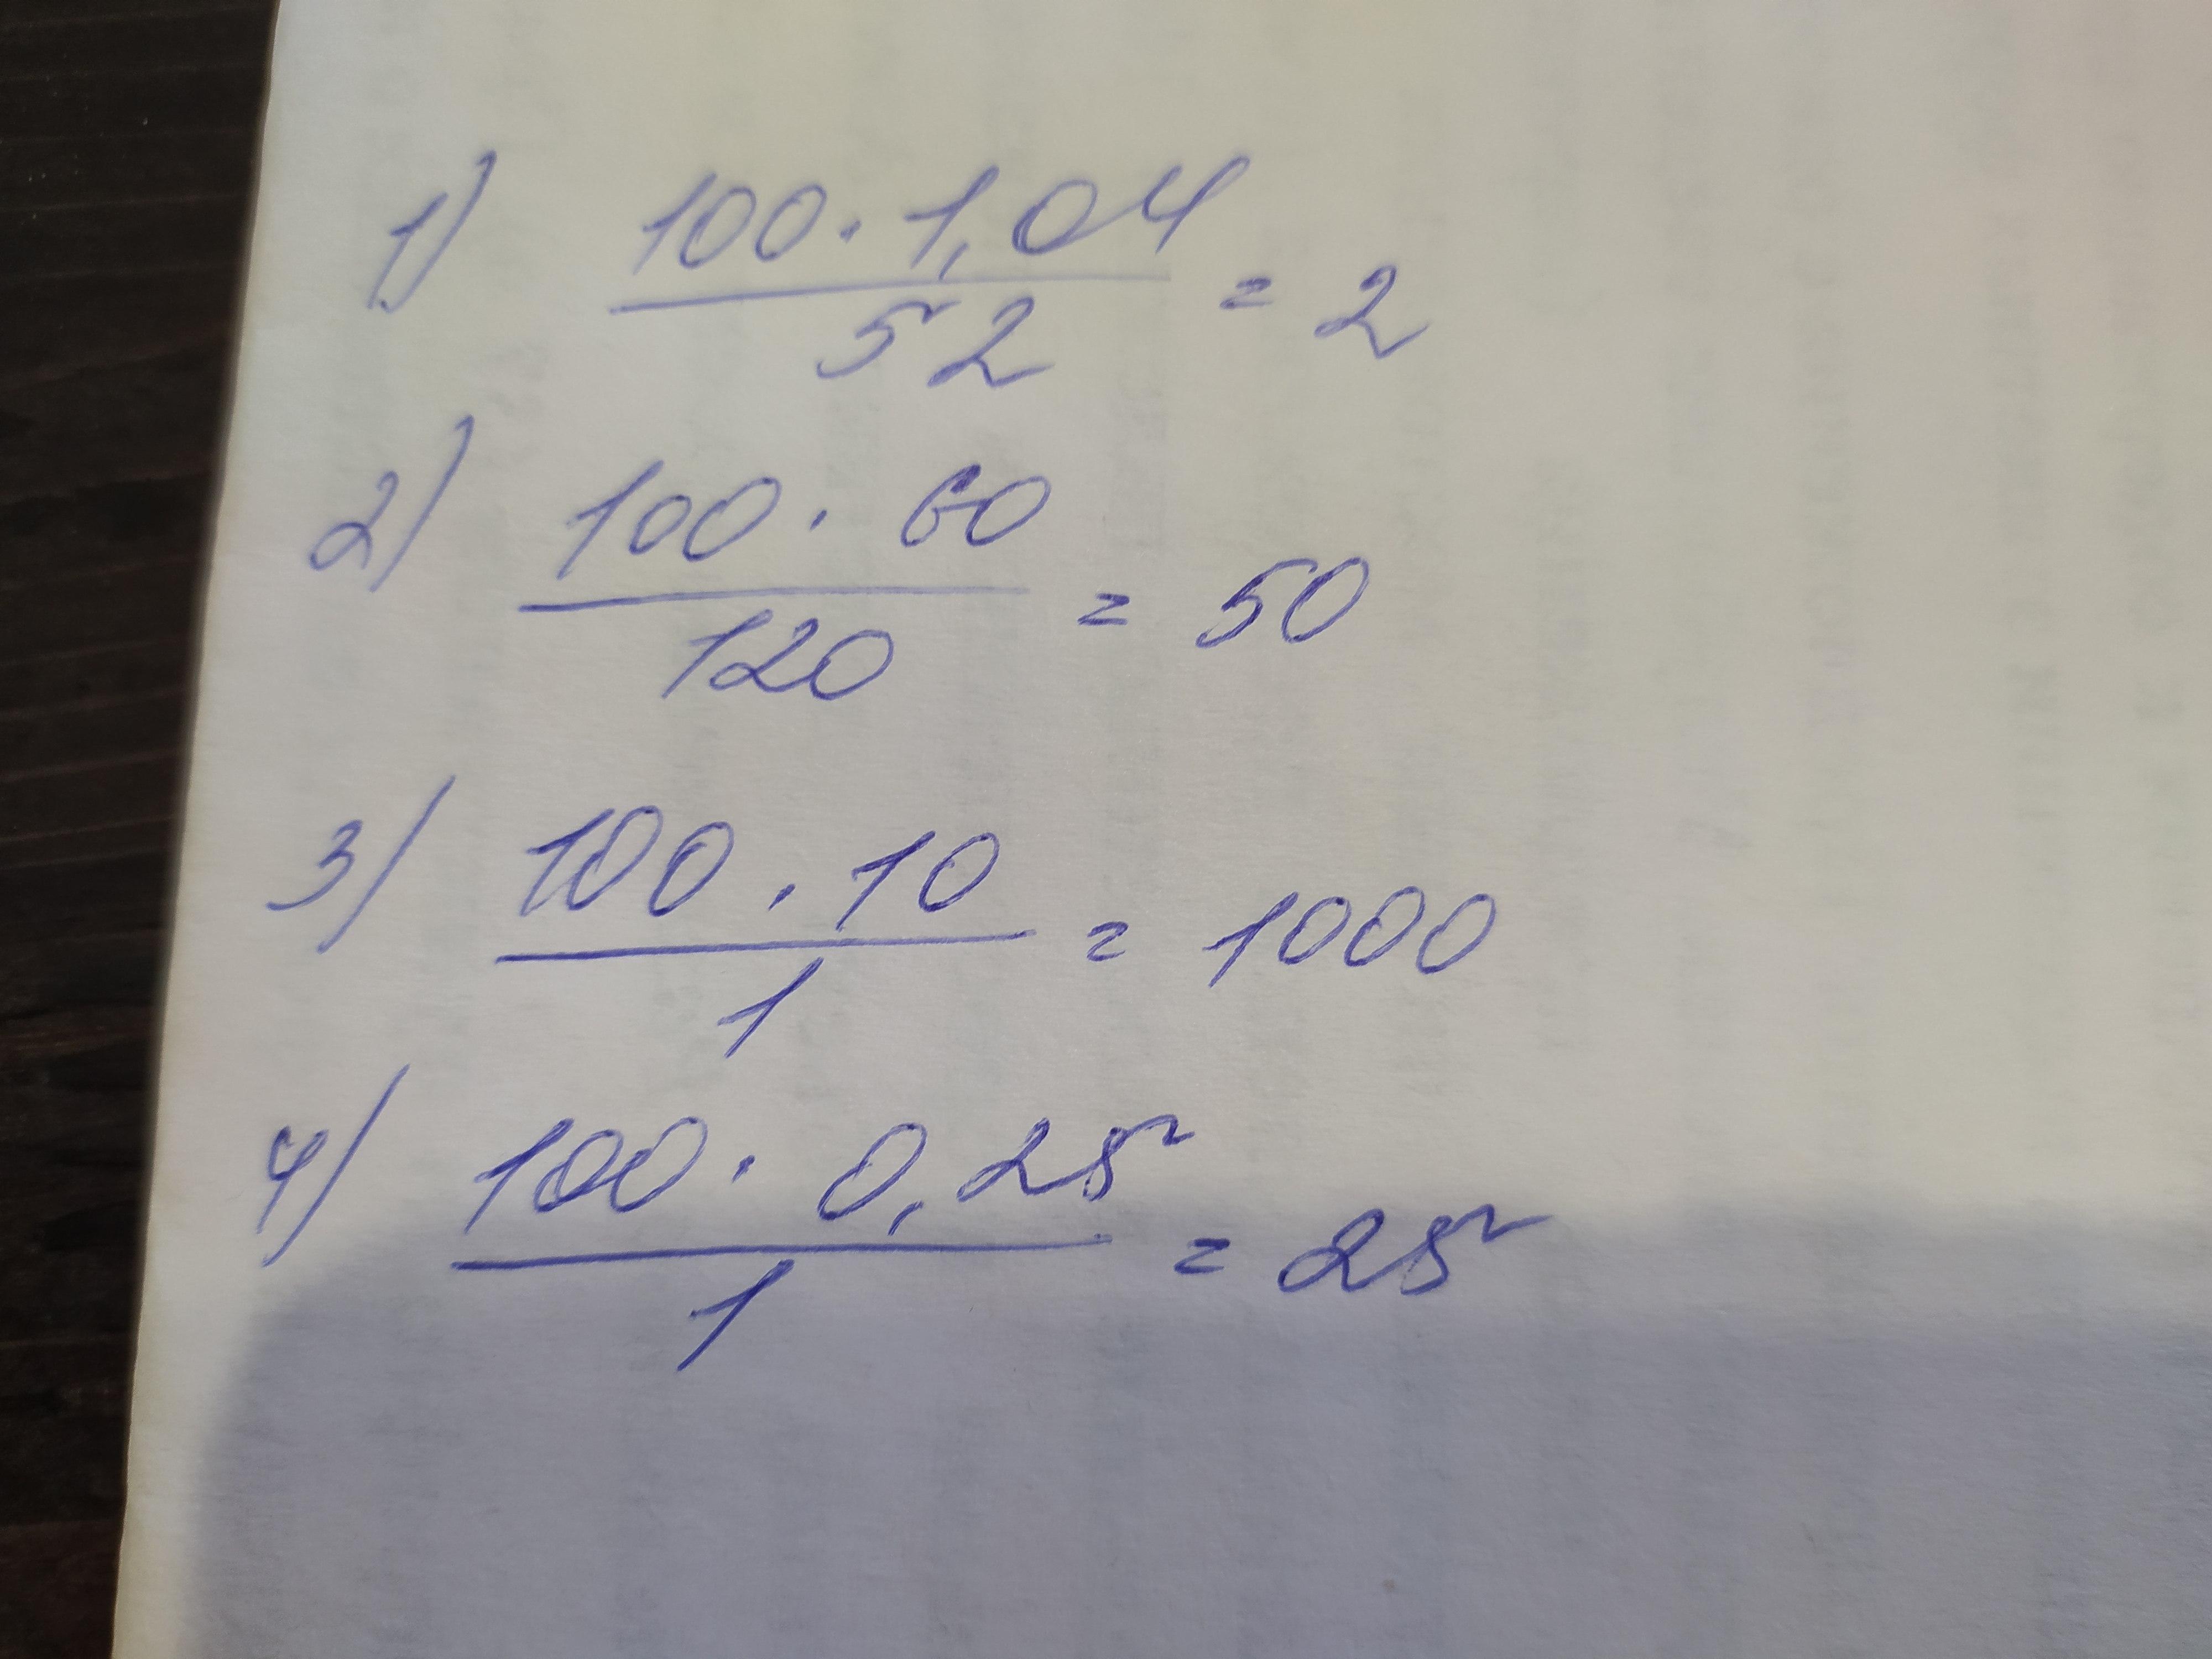 1) 100 · 1,04
52
= 2
2) 100 · 60
120
= 50
3) 100 · 10
1
= 1000
4) 100 · 0,25
1
= 25